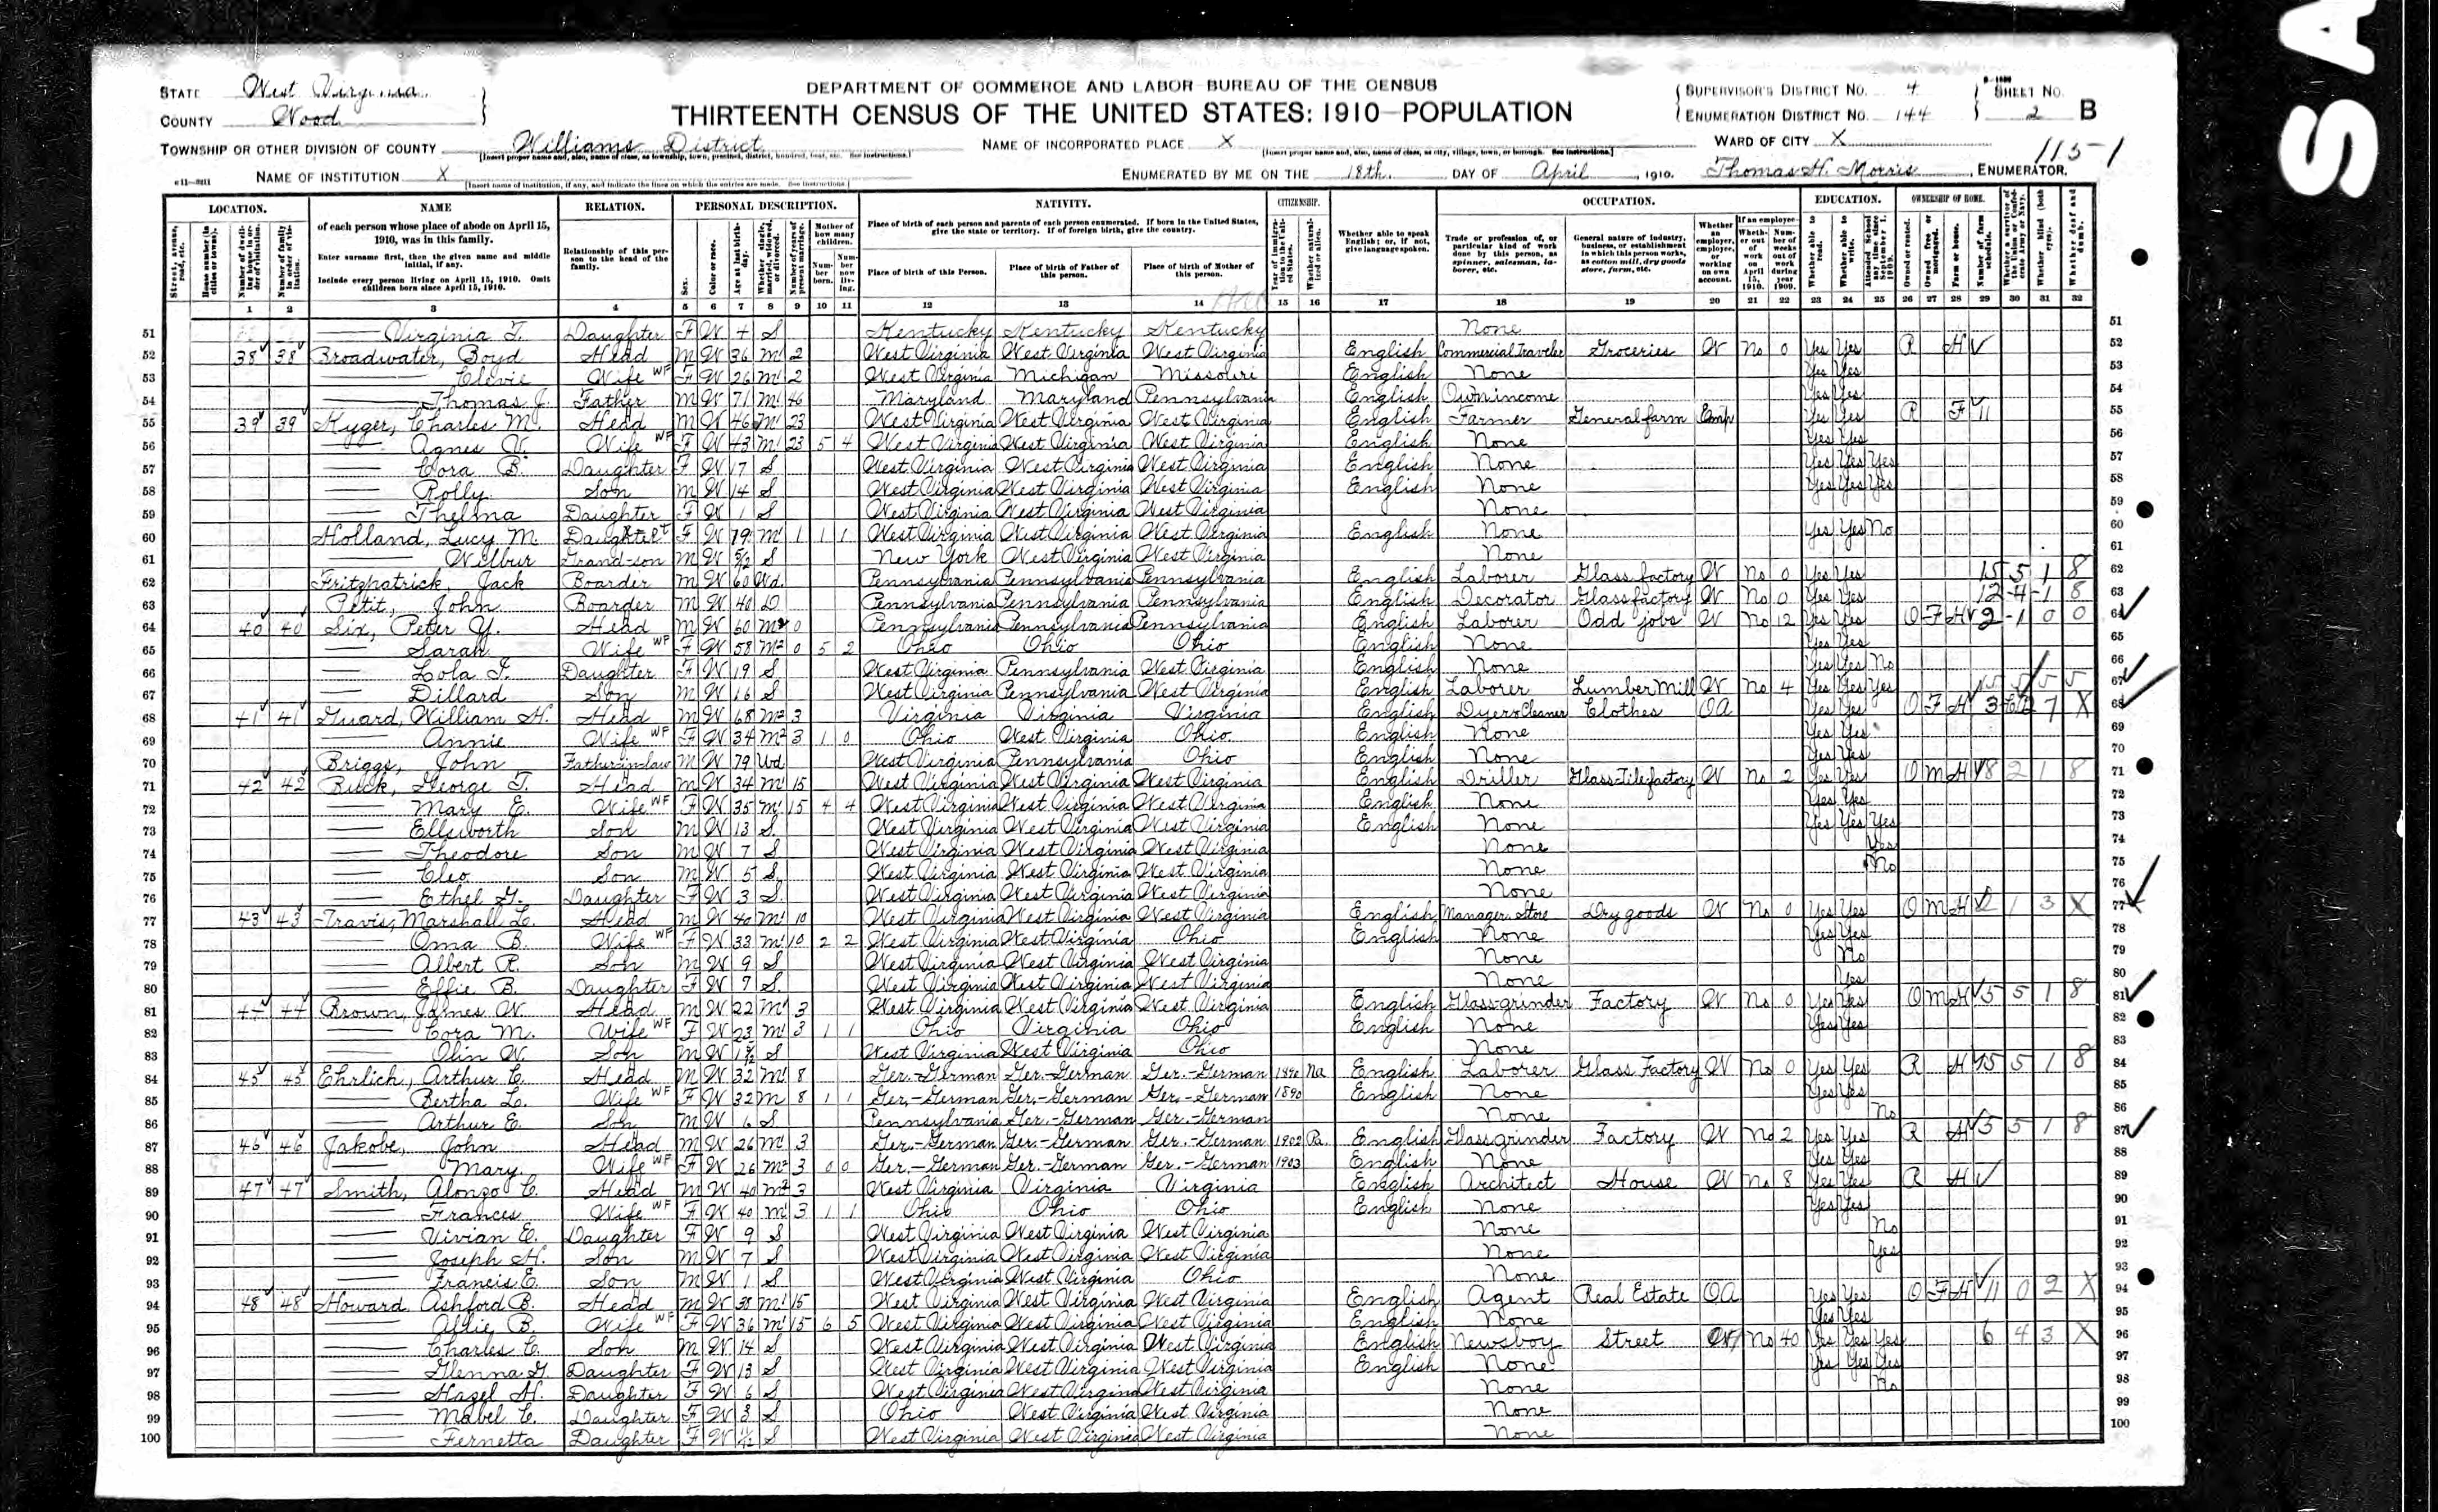 SA
STATE West Virginia
COUNTY Wood
DEPARTMENT OF COMMERCE AND LABOR-BUREAU OF THE CENSUS
THIRTEENTH CENSUS OF THE UNITED STATES: 1910-POPULATION
SUPERVISOR'S DISTRICT No. 4
ENUMERATION DISTRICT No. 144
SHEET No. 2 B
TOWNSHIP OR OTHER DIVISION OF COUNTY Williams District
NAME OF INCORPORATED PLACE X
WARD OF CITY X
1151
NAME OF INSTITUTION X
ENUMERATED BY ME ON THE 18th DAY OF April, 1910. Thomas H. Morris, ENUMERATOR.
LOCATION. NAME RELATION. PERSONAL DESCRIPTION. NATIVITY. CITIZENSHIP. OCCUPATION. EDUCATION. OWNERSHIP OF HOME.
of each person whose place of abode on April 15, 1910, was in this family.
Enter surname first, then the given name and middle initial, if any.
Include every person living on April 15, 1910. Omit children born since April 15, 1910.
Relationship of this person to the head of the family.
Place of birth of each person and parents of each person enumerated. If born in the United States, give the state or territory. If of foreign birth, give the country.
Place of birth of this Person. Place of birth of Father of this person. Place of birth of Mother of this person.
Whether able to speak English; or, if not, give language spoken.
Trade or profession of, or particular kind of work done by this person, as spinner, salesman, laborer, etc.
General nature of industry, business, or establishment in which this person works, as cotton mill, dry goods store, farm, etc.
1 2 3 4 5 6 7 8 9 10 11 12 13 14 15 16 17 18 19 20 21 22 23 24 25 26 27 28 29 30 31 32
51 Virginia Daughter F W 4 S Kentucky Kentucky Kentucky None 51
52 38 38 Broadwater, Boyd Head M W 36 M1 2 West Virginia West Virginia West Virginia English Commercial Traveler Groceries W No 0 Yes Yes R H 52
53 Clevie Wife F W 26 M1 2 West Virginia Michigan Missouri English None Yes Yes 53
54 Thomas J. Father M W 71 M1 46 Maryland Maryland Pennsylvania English Own income Yes Yes 54
55 39 39 Kyger, Charles M. Head M W 46 M1 23 West Virginia West Virginia West Virginia English Farmer General farm Emp Yes Yes R F 11 55
56 Agnes V. Wife F W 43 M1 23 5 4 West Virginia West Virginia West Virginia English None Yes Yes 56
57 Cora B. Daughter F W 17 S West Virginia West Virginia West Virginia English None Yes Yes Yes 57
58 Rolly Son M W 14 S West Virginia West Virginia West Virginia English None Yes Yes Yes 58
59 Thelma Daughter F W 1 S West Virginia West Virginia West Virginia None 59
60 Holland, Lucy M. Daughter F W 19 M1 1 1 1 West Virginia West Virginia West Virginia English None Yes Yes No 60
61 Wilbur Grand-son M W 5/12 S New York West Virginia West Virginia None 61
62 Fritzpatrick, Jack Boarder M W 60 Wd. Pennsylvania Pennsylvania Pennsylvania English Laborer Glass factory W No 0 Yes Yes 15 5 1 8 62
63 Petit, John Boarder M W 40 D Pennsylvania Pennsylvania Pennsylvania English Decorator Glass factory W No 0 Yes Yes 12 4 1 8 63
64 40 40 Six, Peter Y. Head M W 60 M2 0 Pennsylvania Pennsylvania Pennsylvania English Laborer Odd jobs W No 12 Yes Yes O F H 2 1 0 0 64
65 Sarah Wife F W 58 M2 0 5 2 Ohio Ohio Ohio English None Yes Yes 65
66 Lola Daughter F W 19 S West Virginia Pennsylvania West Virginia English None Yes Yes No 66
67 Dillard Son M W 16 S West Virginia Pennsylvania West Virginia English Laborer Lumber Mill W No 4 Yes Yes Yes 67
68 41 41 Guard, William H. Head M W 68 M2 3 Virginia Virginia Virginia English Dyer & Cleaner Clothes OA Yes Yes O F H 3 7 X 68
69 Annie Wife F W 34 M2 3 1 0 Ohio West Virginia Ohio English None Yes Yes 69
70 Briggs, John Father-in-law M W 79 Wd West Virginia Pennsylvania Ohio English None Yes Yes 70
71 42 42 Buck, George T. Head M W 34 M1 15 West Virginia West Virginia West Virginia English Driller Glass-Tile factory W No 2 Yes Yes O M H 8 2 1 8 71
72 Mary E. Wife F W 35 M1 15 4 4 West Virginia West Virginia West Virginia English None Yes Yes 72
73 Ellsworth Son M W 13 S West Virginia West Virginia West Virginia English None Yes Yes Yes 73
74 Theodore Son M W 7 S West Virginia West Virginia West Virginia None Yes 74
75 Cleo Son M W 5 S West Virginia West Virginia West Virginia None No 75
76 Ethel G. Daughter F W 3 S West Virginia West Virginia West Virginia None 76
77 43 43 Travis, Marshall L. Head M W 40 M1 10 West Virginia West Virginia West Virginia English Manager Store Dry goods W No 0 Yes Yes O M H 1 3 X 77
78 Oma B. Wife F W 33 M1 10 2 2 West Virginia West Virginia Ohio English None Yes Yes 78
79 Albert R. Son M W 9 S West Virginia West Virginia West Virginia None No 79
80 Effie B. Daughter F W 7 S West Virginia West Virginia West Virginia None Yes 80
81 44 44 Brown, James W. Head M W 22 M1 3 West Virginia West Virginia West Virginia English Glass grinder Factory W No 0 Yes Yes O M H 5 5 1 8 81
82 Cora M. Wife F W 23 M1 3 1 1 Ohio Virginia Ohio English None Yes Yes 82
83 Olin W. Son M W S West Virginia West Virginia Ohio None 83
84 45 45 Ehrlich, Arthur C. Head M W 32 M1 8 Ger.-German Ger.-German Ger.-German Na English Laborer Glass Factory W No 0 Yes Yes R H 15 5 1 8 84
85 Bertha L. Wife F W 32 M 8 1 1 Ger.-German Ger.-German Ger.-German 1890 English None Yes Yes 85
86 Arthur E. Son M W 6 S Pennsylvania Ger.-German Ger.-German None No 86
87 46 46 Jakobe, John Head M W 26 M1 3 Ger.-German Ger.-German Ger.-German 1902 Pa English Glass grinder Factory W No 2 Yes Yes R H 5 5 1 8 87
88 Mary Wife F W 26 M2 3 0 0 Ger.-German Ger.-German Ger.-German 1903 English None Yes Yes 88
89 47 47 Smith, Alonzo C. Head M W 40 M2 3 West Virginia Virginia Virginia English Architect House W No 8 Yes Yes R H 89
90 Frances Wife F W 40 M1 3 1 1 Ohio Ohio Ohio English None Yes Yes 90
91 Vivian E. Daughter F W 9 S West Virginia West Virginia West Virginia None No 91
92 Joseph H. Son M W 7 S West Virginia West Virginia West Virginia None Yes 92
93 Francis E. Son M W 1 S West Virginia West Virginia Ohio None 93
94 48 48 Howard, Ashford B. Head M W 38 M1 15 West Virginia West Virginia West Virginia English Agent Real Estate OA Yes Yes O F H 11 0 2 X 94
95 Allie B. Wife F W 36 M1 15 6 5 West Virginia West Virginia West Virginia English None Yes Yes 95
96 Charles C. Son M W 14 S West Virginia West Virginia West Virginia English Newsboy Street No 40 Yes Yes Yes 6 4 3 X 96
97 Glenna G. Daughter F W 13 S West Virginia West Virginia West Virginia English None Yes Yes Yes 97
98 Hazel H. Daughter F W 6 S West Virginia West Virginia West Virginia None No 98
99 Mabel C. Daughter F W 3 S Ohio West Virginia West Virginia None 99
100 Fernetta Daughter F W S West Virginia West Virginia West Virginia None 100